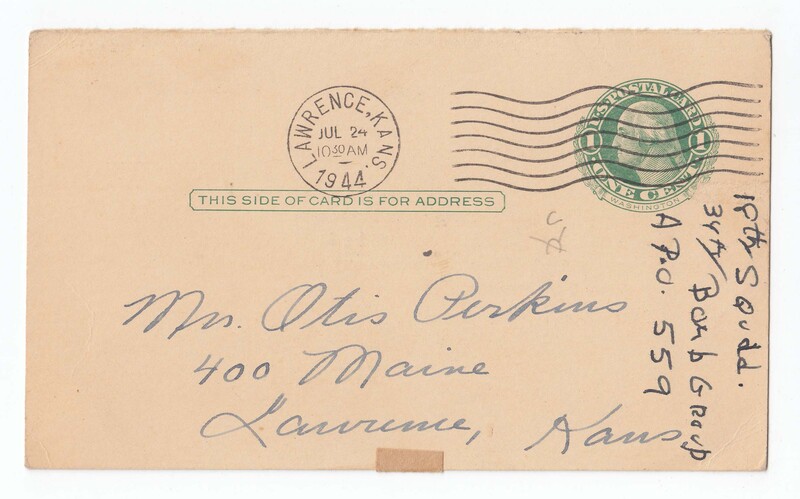 LAWRENCE, KANS.
JUL 24
10 30 AM
1944
U.S. POSTAL CARD
1 1
ONE CENT
WASHINGTON
THIS SIDE OF CARD IS FOR ADDRESS
Mr. Otis Perkins
400 Maine
Lawrence, Kans.
18th Squdd.
34th Bomb Group
A P.O. 559